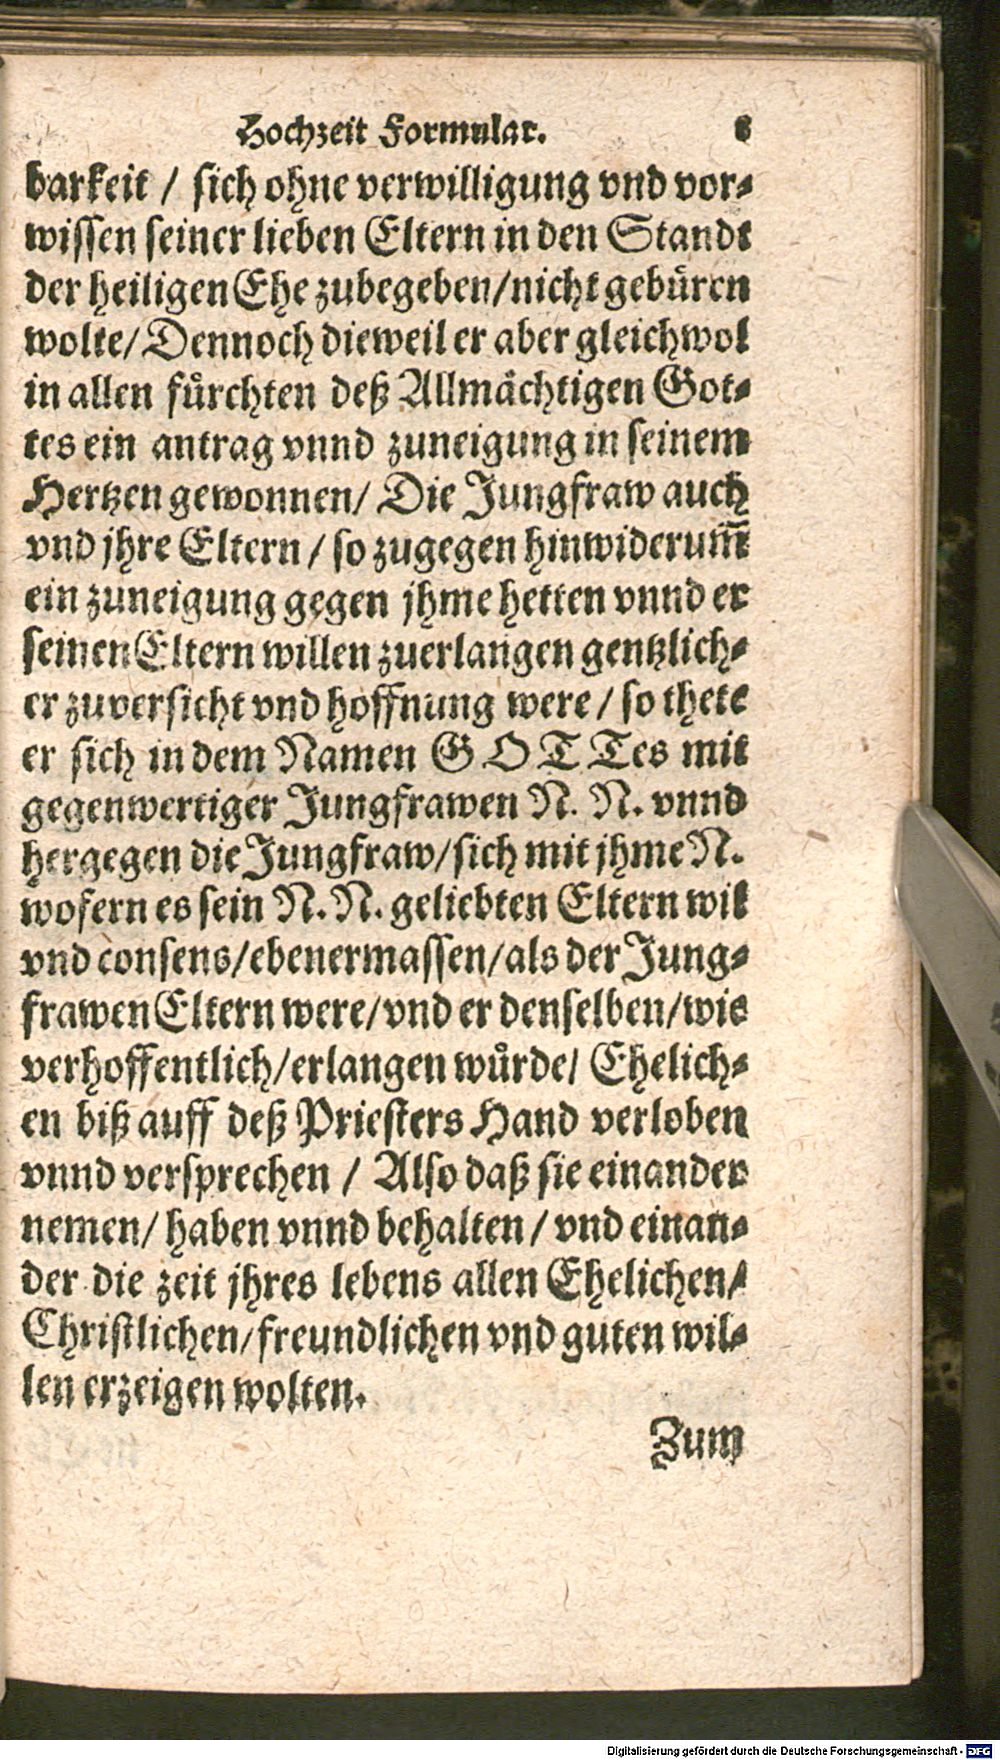 Hochzeit Formular. 8
barkeit / sich ohne verwilligung vnd vor⸗
wissen seiner lieben Eltern in den Standt
der heiligen Ehe zubegeben/nicht gebuͤren
wolte/Dennoch dieweil er aber gleichwol
in allen fuͤrchten deß Allmaͤchtigen Got⸗
tes ein antrag vnnd zuneigung in seinem
Hertzen gewonnen/ Die Jungfraw auch
vnd jhre Eltern / so zugegen hinwiderum̃
ein zuneigung gegen jhme hetten vnnd er
seinen Eltern willen zuerlangen gentzlich⸗
er zuversicht vnd hoffnung were / so thete
er sich in dem Namen GOTTes mit
gegenwertiger Jungfrawen N. N. vnnd
hergegen die Jungfraw/sich mit jhme N.
wofern es sein N. N. geliebten Eltern wil
vnd consens/ebenermassen/als der Jung⸗
frawen Eltern were/vnd er denselben/wie
verhoffentlich/erlangen wuͤrde/ Ehelich⸗
en biß auff deß Priesters Hand verloben
vnnd versprechen / Also daß sie einander
nemen/ haben vnnd behalten / vnd einan⸗
der die zeit jhres lebens allen Ehelichen/
Christlichen/freundlichen vnd guten wil⸗
len erzeigen wolten.
Zum
Digitalisierung gefördert durch die Deutsche Forschungsgemeinschaft - DFG